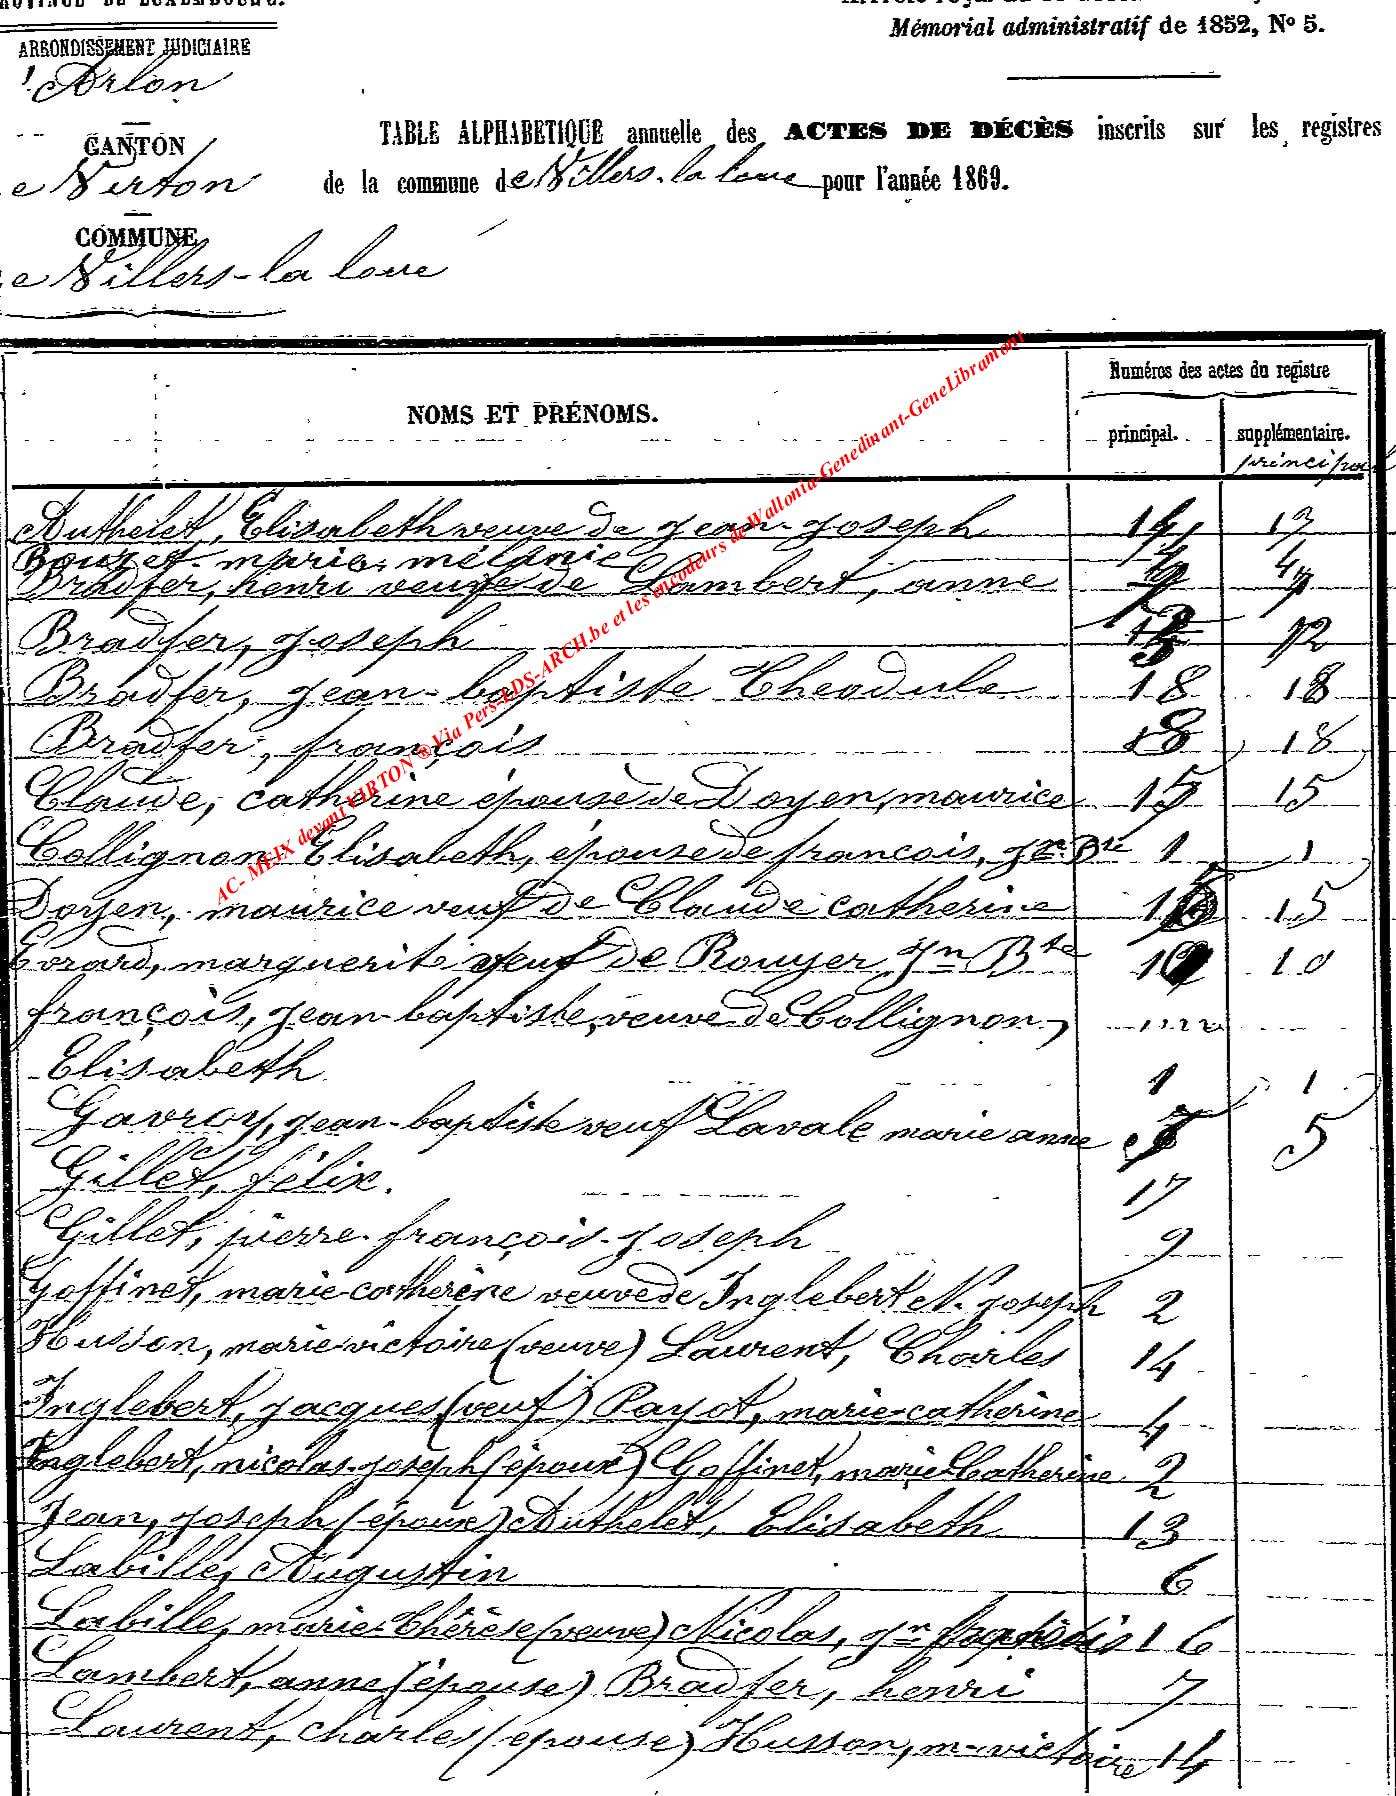 PROVINCE DE LUXEMBOURG.
Mémorial administratif de 1852, No 5.
ARRONDISSEMENT JUDICIAIRE
Arlon
CANTON
e Virton
TABLE ALPHABETIQUE annuelle des ACTES DE DÉCÈS inscrits sur les registres
de la commune de Villers-la loue pour l'année 1869.
COMMUNE
e Villers-la loue
NOMS ET PRÉNOMS.
Numéros des actes du registre
principal. supplémentaire.
principal
AC- MEIX devant VIRTON ® Via Pers-LDS-ARCH.be et les encodeurs de Wallonia-Genedinant-GeneLibramont
Authelet, Elisabeth veuve de jean-joseph 13
Bouzet marie mélanie 4
Bradfer, henri veuf de Lambert, anne 7
Bradfer, joseph 12
Bradfer, jean-baptiste Theodule 18 18
Bradfer, françois 18 18
Claude, catherine épouse de Doyen, maurice 15 15
Collignon Elisabeth, épouse de françois, Jn Bte 1 1
Doyen, maurice veuf de Claude catherine 15 15
Evrard, marguerite veuf de Rouyer Jn Bte 10 10
françois, jean-baptiste, veuve de Collignon,
Elisabeth 1 1
Gavroy, jean-baptiste veuf Lavale marie anne 5 5
Gillet, félix. 17
Gillet, pierre-françois-joseph 9
Goffinet, marie-catherine veuve de Inglebert N. joseph 2
Husson, marie-victoire (veuve) Laurent, Charles 14
Inglebert, jacques (veuf) Payot, marie-catherine 4
Inglebert, nicolas-joseph (époux) Goffinet, marie-Catherine 2
Jean, joseph (époux) Authelet, Elisabeth 13
Labille, Augustin 6
Labille, marie-Thérèse (veuve) Nicolas, jn françois 16
Lambert, anne (épouse) Bradfer, henri 7
Laurent, charles (epouse) Husson, m-victoire 14